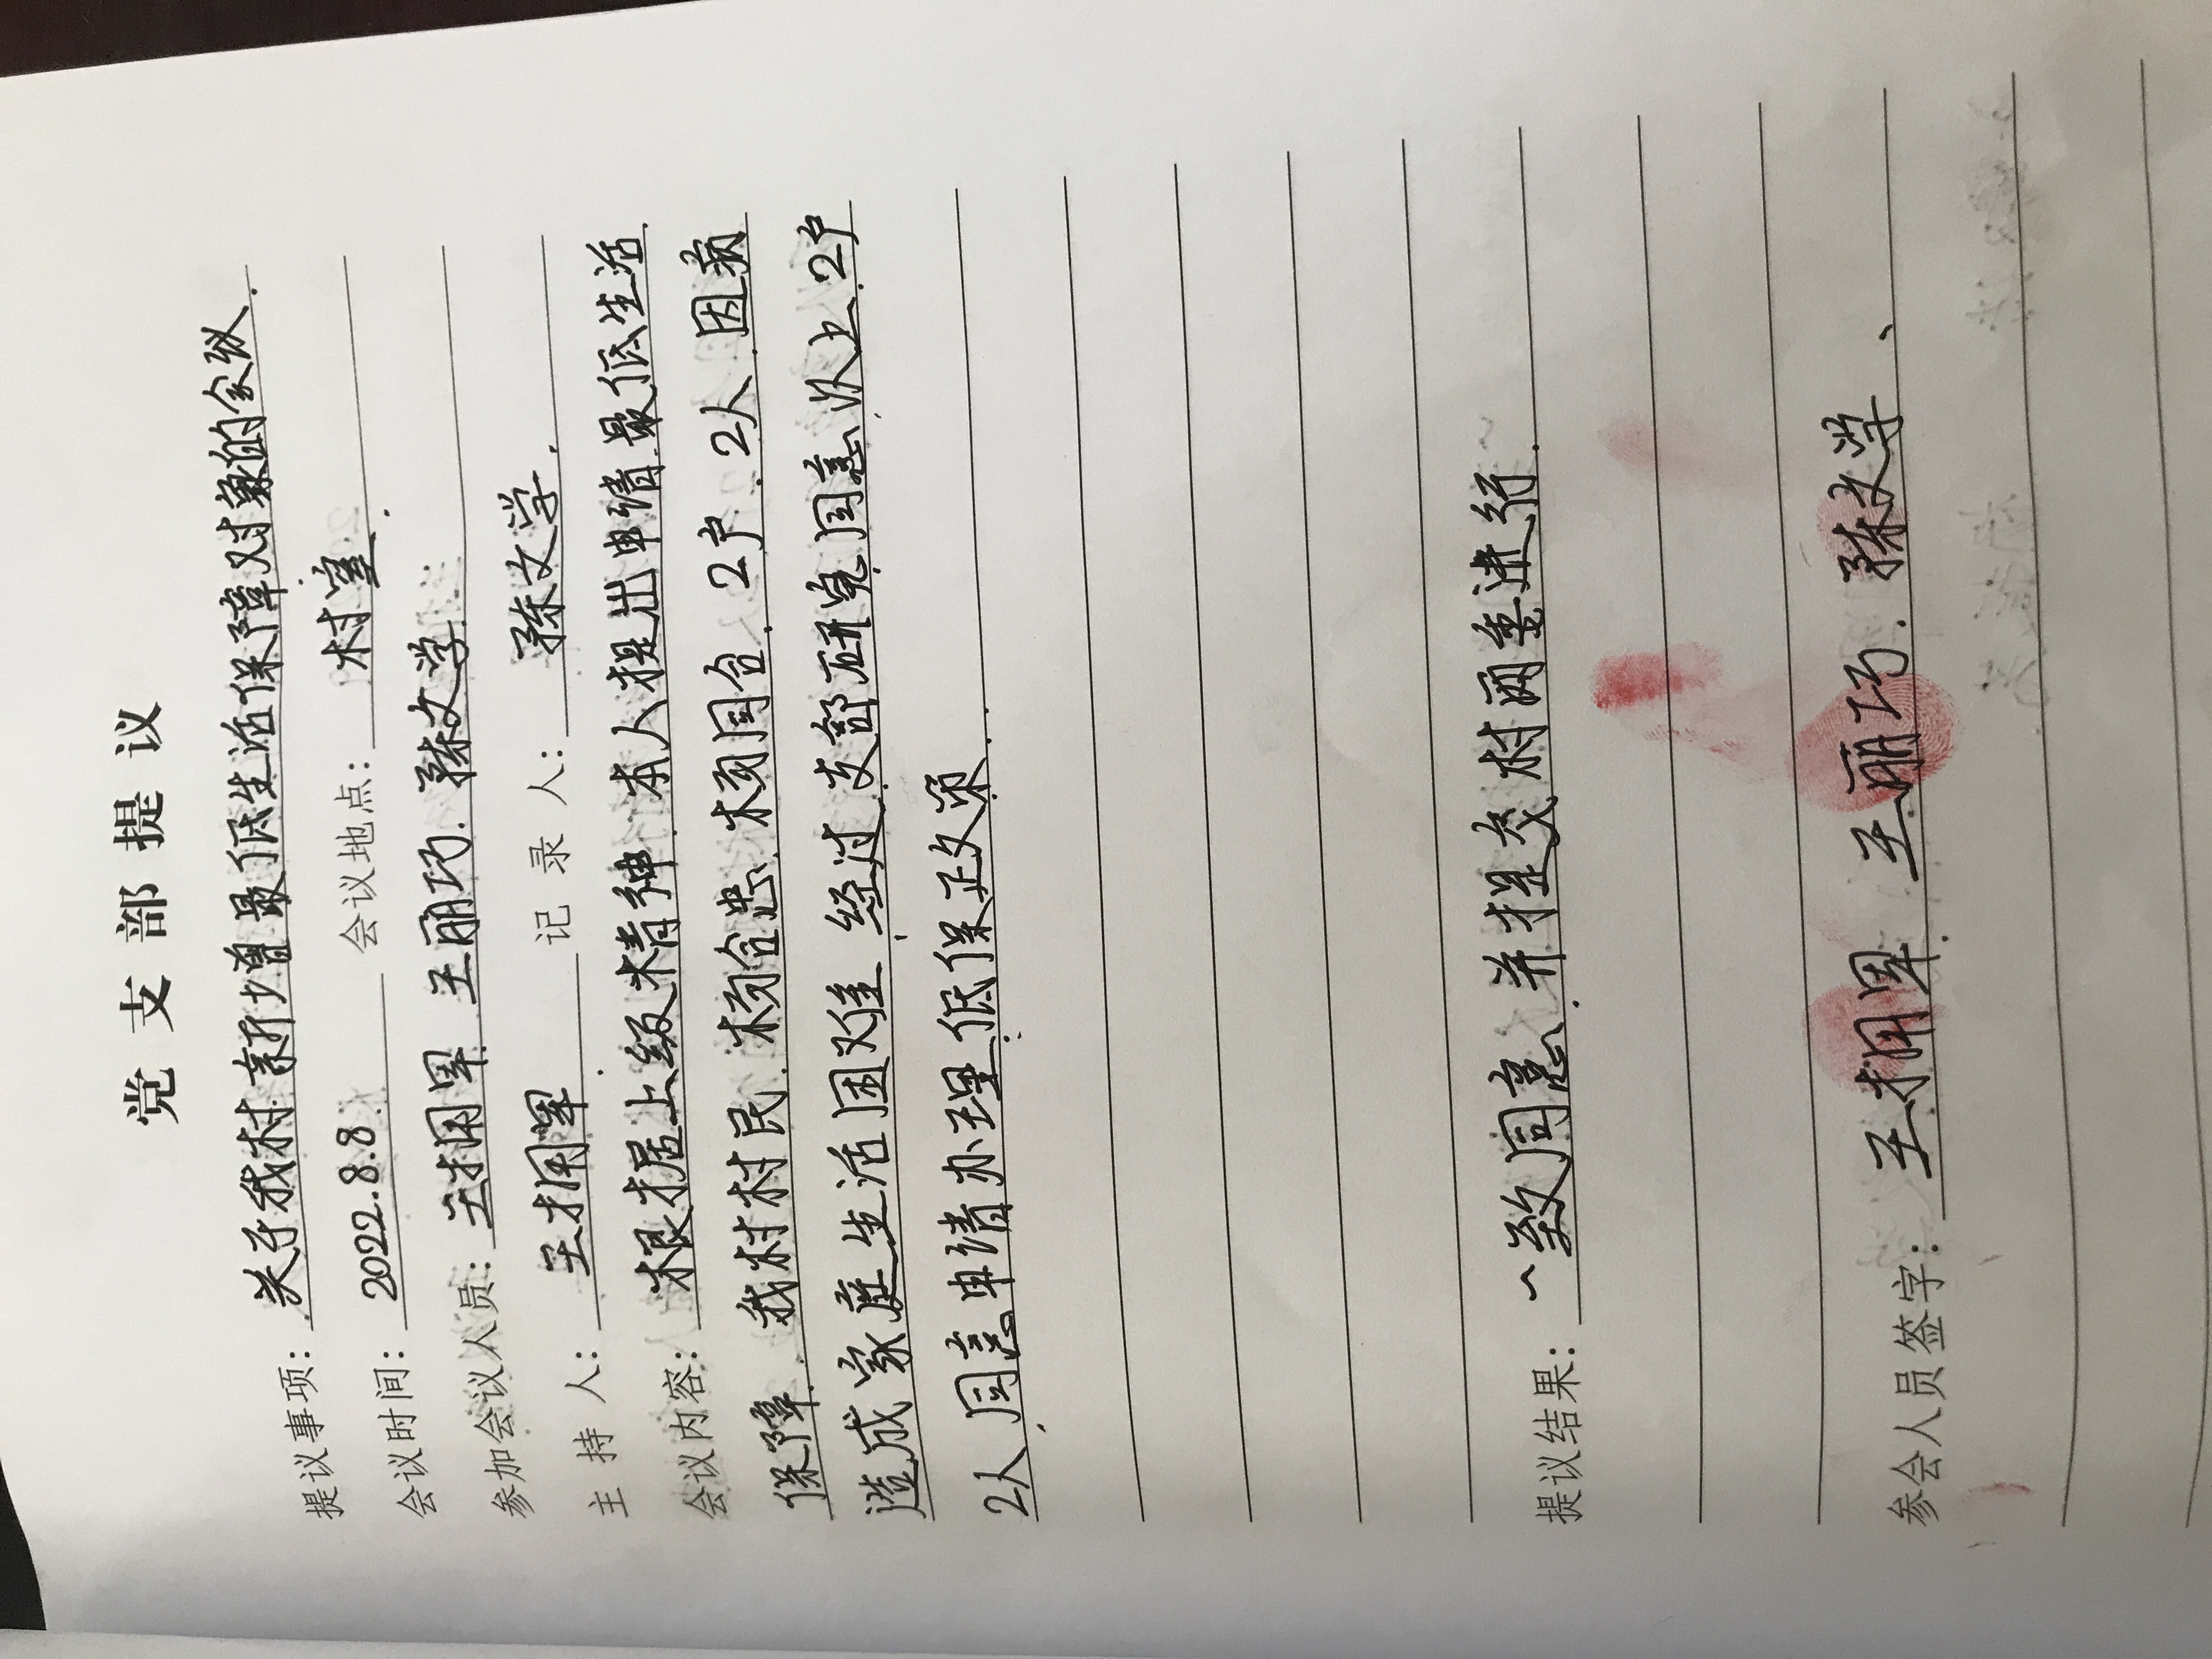 党支部提议
提议事项：关于我村新增最低生活保障对象的会议.
会议时间：2022.8.8. 会议地点：村室.
参加会议人员：王拥军. 王丽巧. 陈文学.
主持人：王拥军. 记录人：陈文学.
会议内容：根据上级精神.本人提出申请最低生活
保障.我村村民.杨合忠.杨同合.2户.2人.因病
造成家庭生活困难,经过支部研究同意.以上.2户
2人,同意申请办理低保政策.
提议结果：一致同意.并提交村两委进行.
参会人员签字：王拥军. 王丽巧. 陈文学、